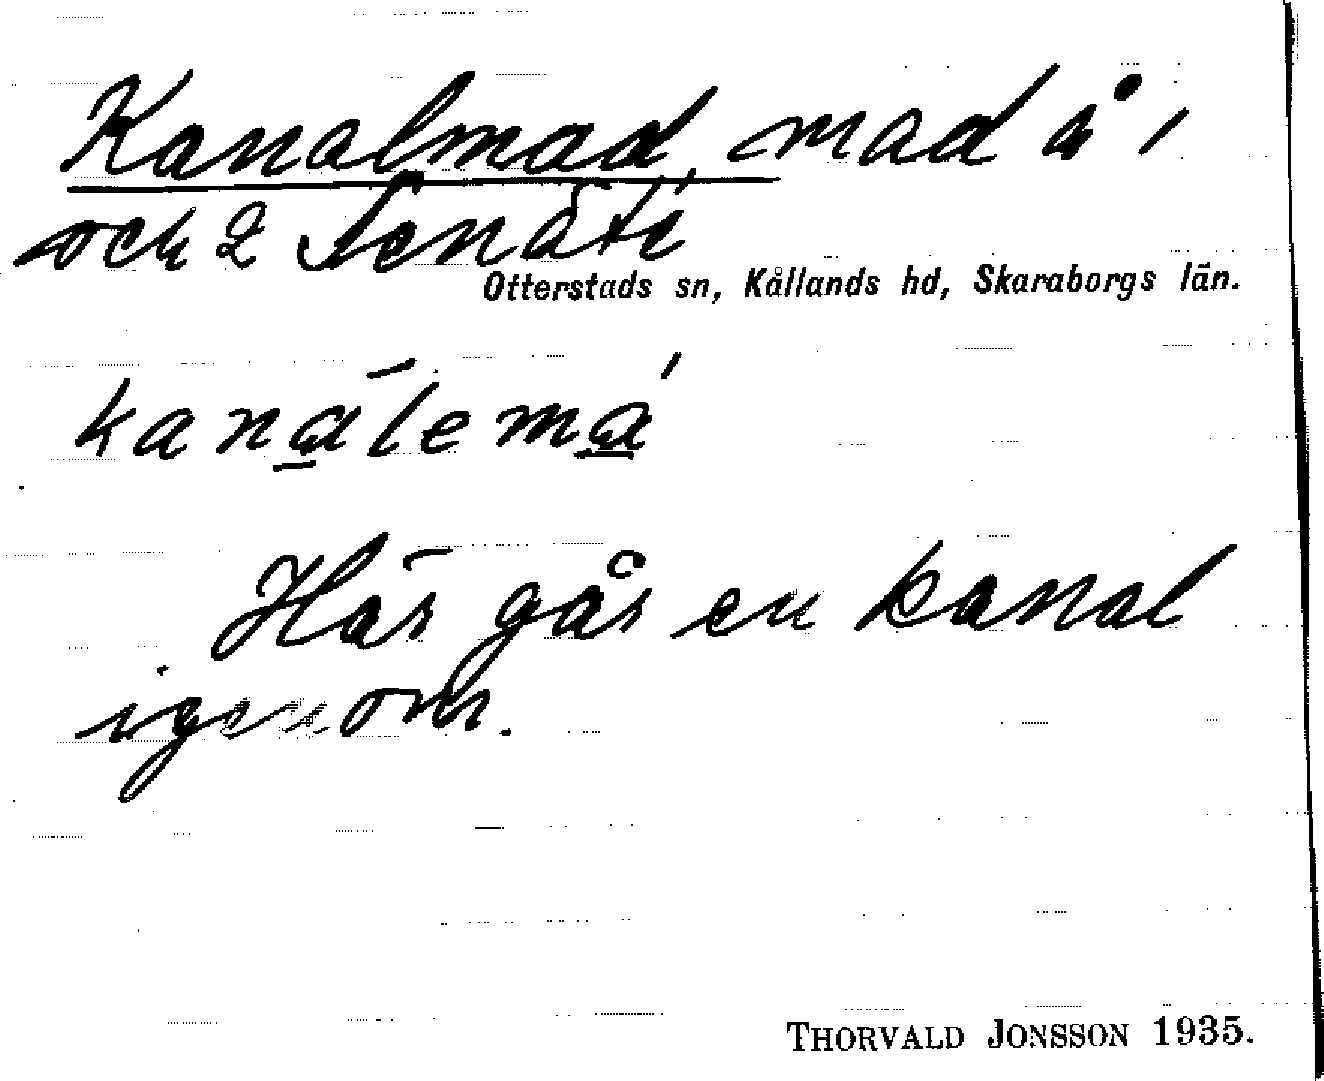 Kanalmad, mad å 1
och 2 Senäte
Otterstads sn, Kållands hd, Skaraborgs län.
kanalemá
Här går en kanal
igenom.
THORVALD JONSSON 1935.